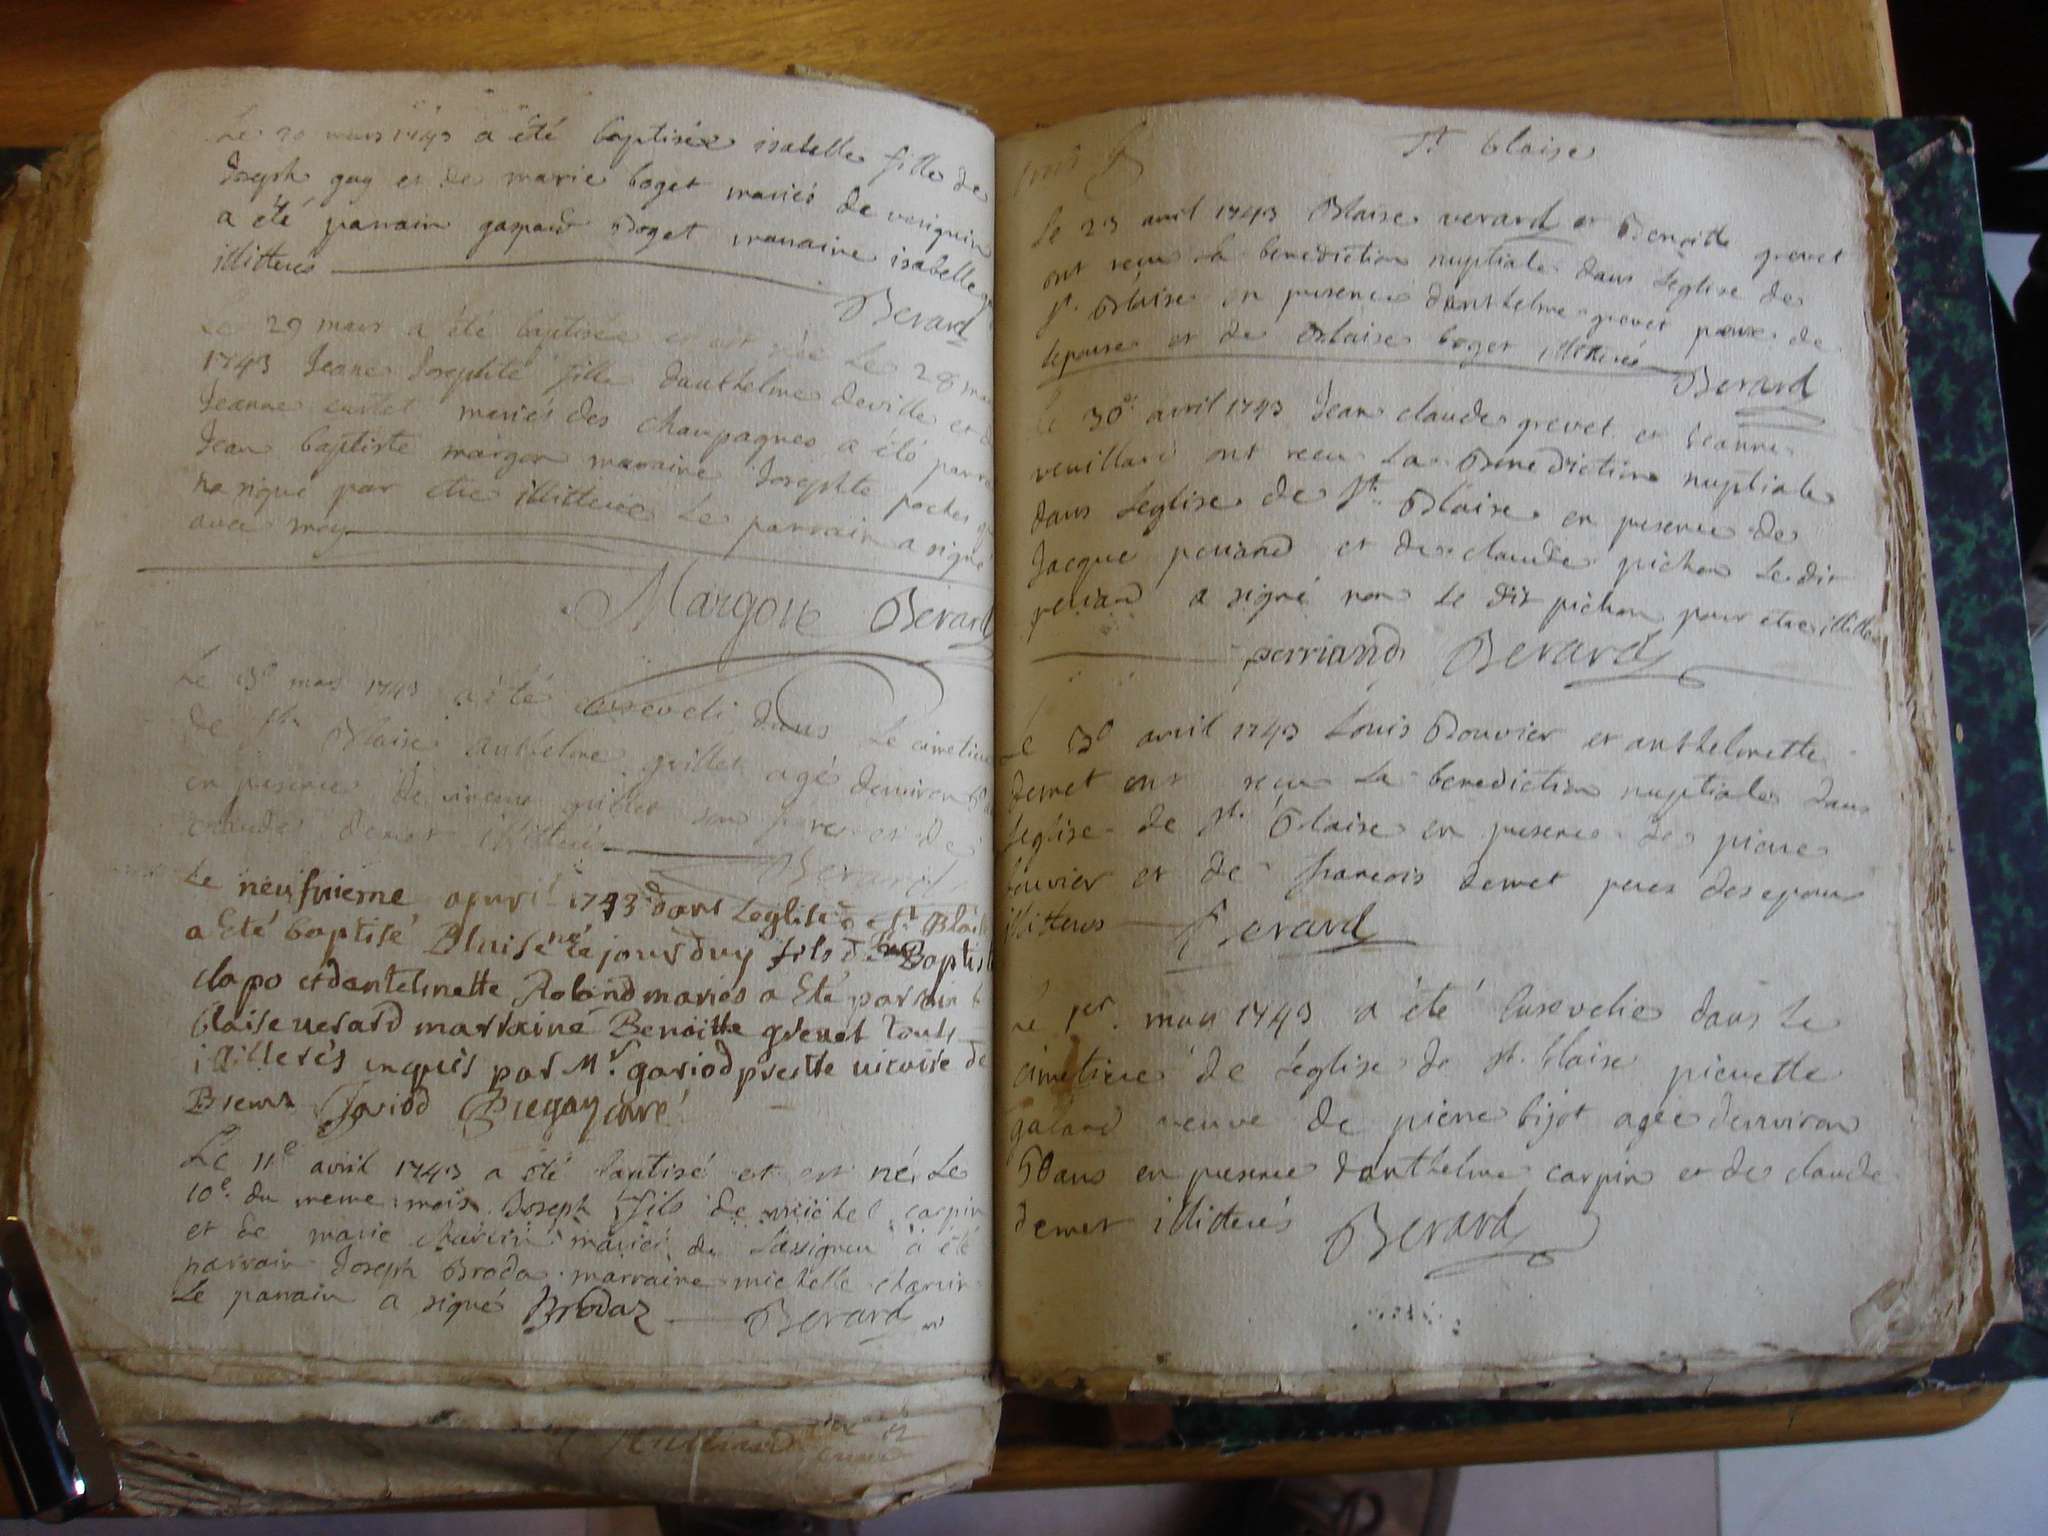 Le 20 mars 1743 a été baptisée isabelle fille de
Joseph guy et de marie boget mariés de
a été parrain gaspard Boget maraine isabelle
illitterés
Berard
Le 29 mars a été baptisée et est née Le 28
1743 Jeanne Josephte fille danthelme deville et
Jeanne curtet mariés des champagnes a été
Jean baptiste margon maraine Josephte pochet
na signé par etre illitterée Le parrain a signé
avec moy
Margon Berard
Le mars 1743 a été enseveli dans Le
de St. Blaise anthelme guillet agé denviron
en presence de guillet son pere et de
claude demet illitterés
Berard
Le neufvieme apuril 1743 dans Leglise de St. Blaise
a Eté baptisé Blaise né cejourdhuy fils de Jean
clapo et dantelmette Roland mariés a Eté parrain
blaise uerard marraine Benoitte greuet Touts
illiterés par Mr. gariod prestre uicaire de
Brens Gariod Bregay curé
Le 11e avril 1743 a été batisé et est né Le
10e. du meme mois Joseph fils de michel carpin
et de marie charvin mariés de Lassignieu a été
parrain Joseph Broda marraine michelle charvin
Le parrain a signé Brodaz Berard
St blaise
Le 23 avril 1743 Blaise verard et Benoitte grevet
ont recu La benediction nuptiale dans Leglise de
St. Blaise en presence danthelme grevet pere de
lepouse et de Blaise boget illitterés
Berard
Le 30e. avril 1743 Jean claude grevet et Jeanne
veuillard ont recu La Benediction nuptiale
dans Leglise de St. Blaise en presence de
Jacque periand et de claude pichon Le dit
periand a signé non Le dit pichon pour etre
perriand Berard
Le avril 1743 Louis Bouvier et anthelmette
demet ont recu La benediction nuptiale dans
Leglise de St. Blaise en presence de pierre
bouvier et de francois demet peres des epoux
illitterés Berard
Le 1er. may 1743 a été Ensevelie dans Le
cimetiere de Léglise de St. blaise pierrette
galand veuve de pierre bijot agée denviron
50 ans en presence danthelme carpin et de claude
demet illitterés Berard